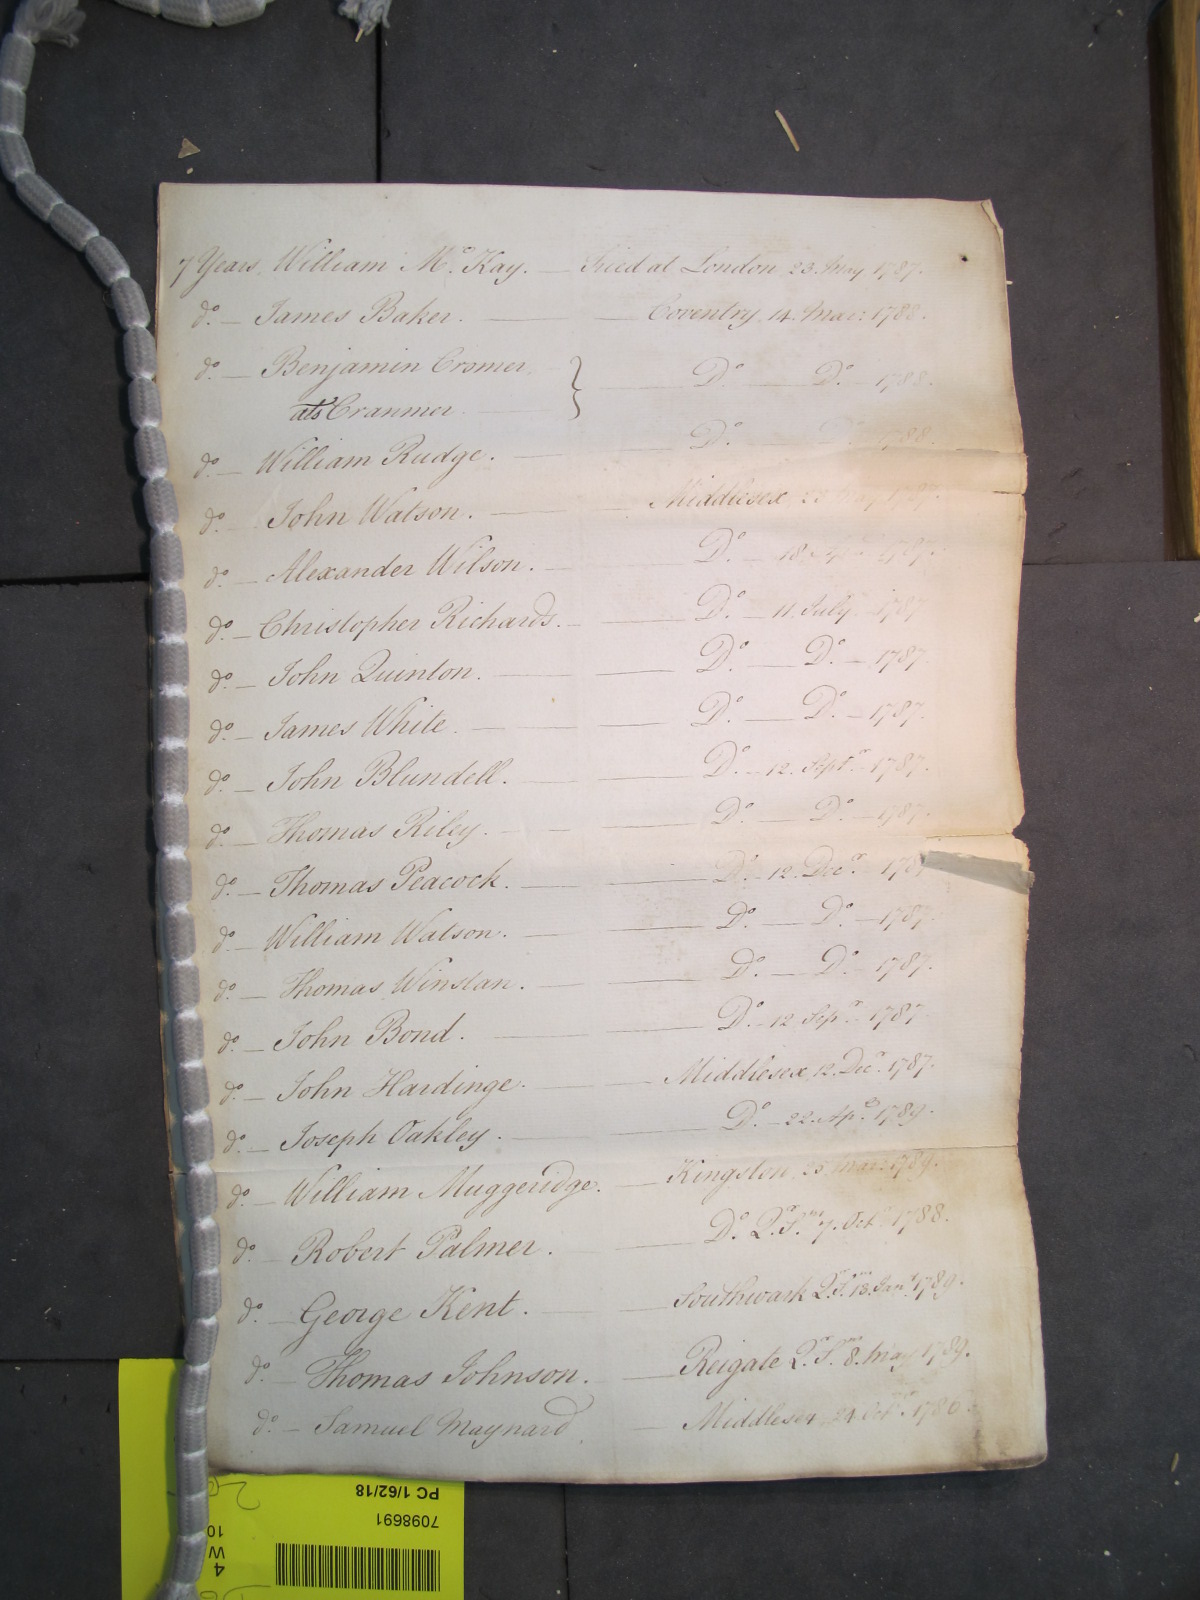 7 Years William McKay. — Tried at London 23. May 1787.
do. — James Baker. — Coventry 14. Mar: 1788.
do. — Benjamin Cromer } — Do. — Do. — 1788.
als Cranmer
do. — William Rudge. — Do. 1788.
do. — John Watson. — Middlesex 23 May 1787.
do. — Alexander Wilson. — Do. — 18 1787.
do. — Christopher Richards. — Do. — 11. July — 1787
do. — John Quinton. — Do. — Do. — 1787.
do. — James White. — Do. — Do. — 1787.
do. — John Blundell. — Do. — 12. Septr. — 1787.
do. — Thomas Riley. — Do. — Do. — 1787.
do. — Thomas Peacock. — Do. — 12. Decr. — 178
do. — William Watson. — Do. — Do. — 1787.
do. — Thomas Winstan. — Do. — Do. — 1787.
do. — John Bond. — Do. — 12 Sepr. — 1787.
do. — John Hardinge. — Middlesex 12. Decr. 1787.
do. — Joseph Oakley. — Do. — 22. Apr. 1789.
do. — William Muggeridge. — Kingston Mar: 1789.
do. — Robert Palmer. — Do. Qr. Sns. 7. Octr. 1788.
do. — George Kent. — Southwark Qr. Sns. 13. Jany. 1789.
do. — Thomas Johnson. — Reigate Qr. Sns. 8. May 1789.
do. — Samuel Maynard — Middlesex 24. Octr. 1786.
PC 1/62/18
7098691
4
W
10